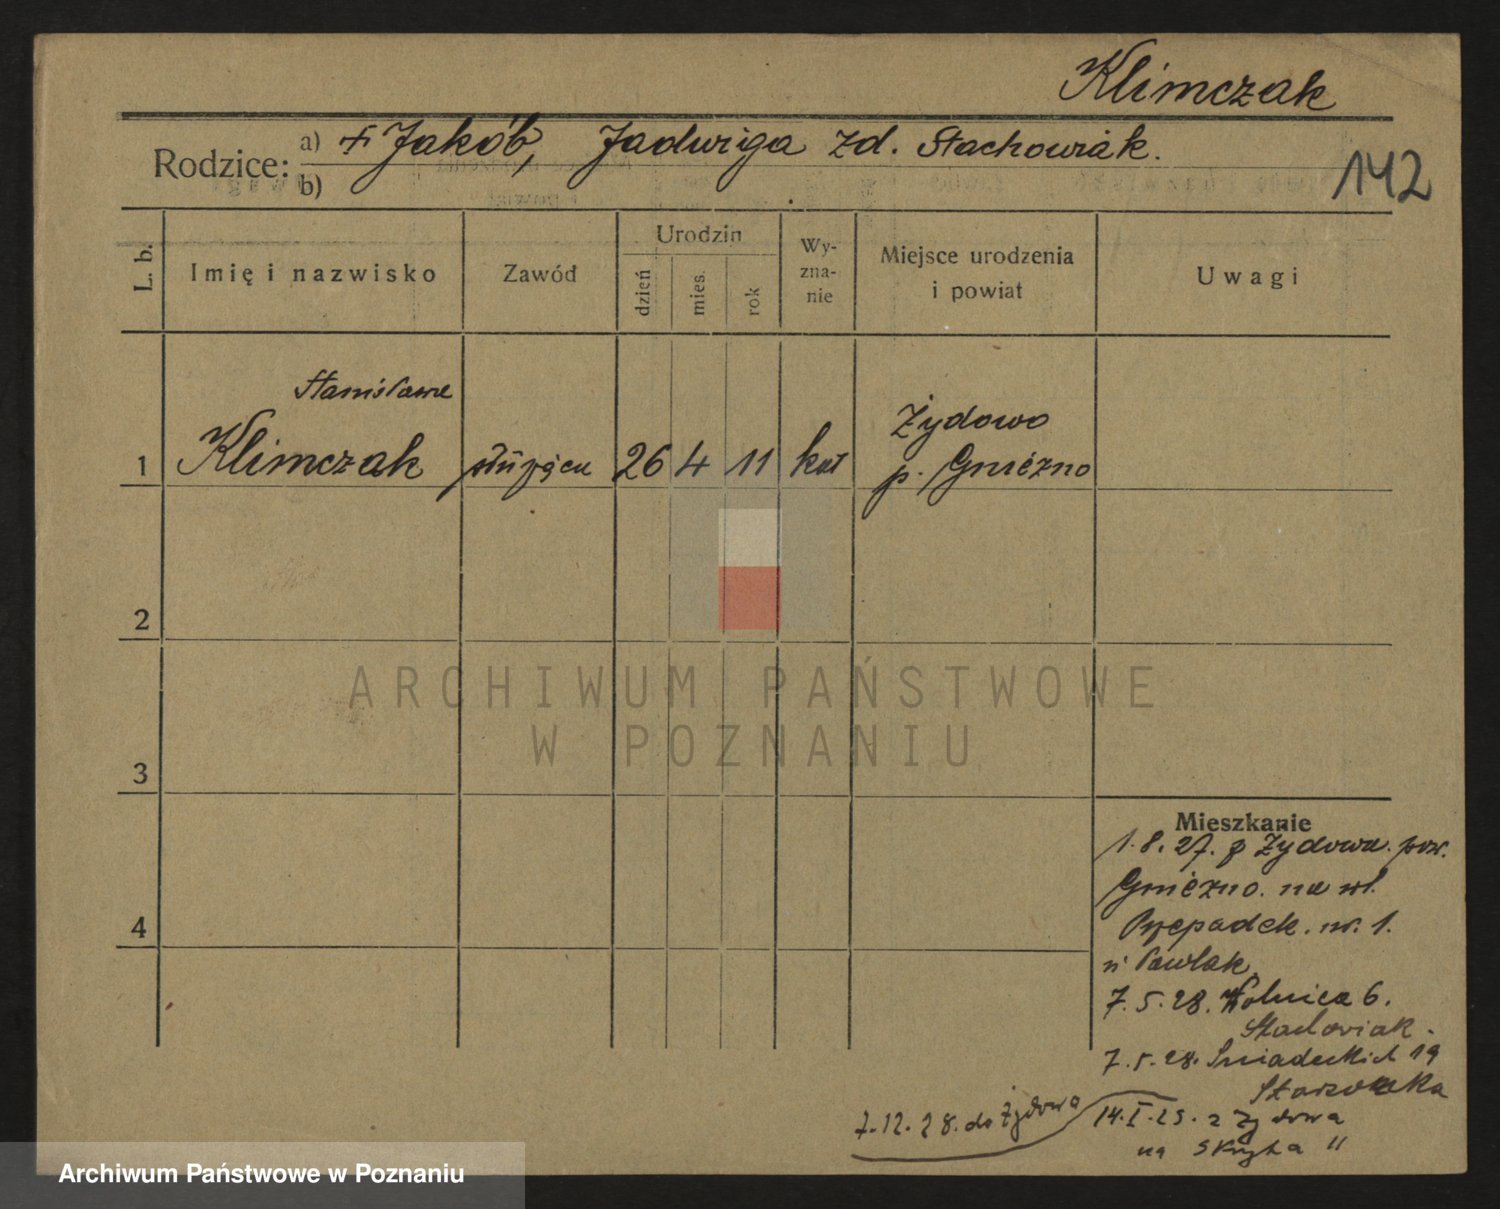 Klimczak
Rodzice: a) + Jakób, Jadwiga zd. Stachowiak.
b)
142
L. b.
Imię i nazwisko
Zawód
Urodzin
dzień
mies.
rok
Wy-
zna-
nie
Miejsce urodzenia
i powiat
Uwagi
Stanisława
1 Klimczak służąca 26 4 11 kat Żydowo
p. Gniezno
2
3
4
ARCHIWUM PAŃSTWOWE
W POZNANIU
Mieszkanie
1.8.27. z Żydowa. pow.
Gniezno. na ul.
Przepadek. nr. 1.
Pawlak
7.5.28. Wolnica 6.
Stachowiak.
7.5.28. Śniadeckich 19
7.12.28. do Żydowa
14.I.29. z Żydowa
na Skryta 11
Archiwum Państwowe w Poznaniu